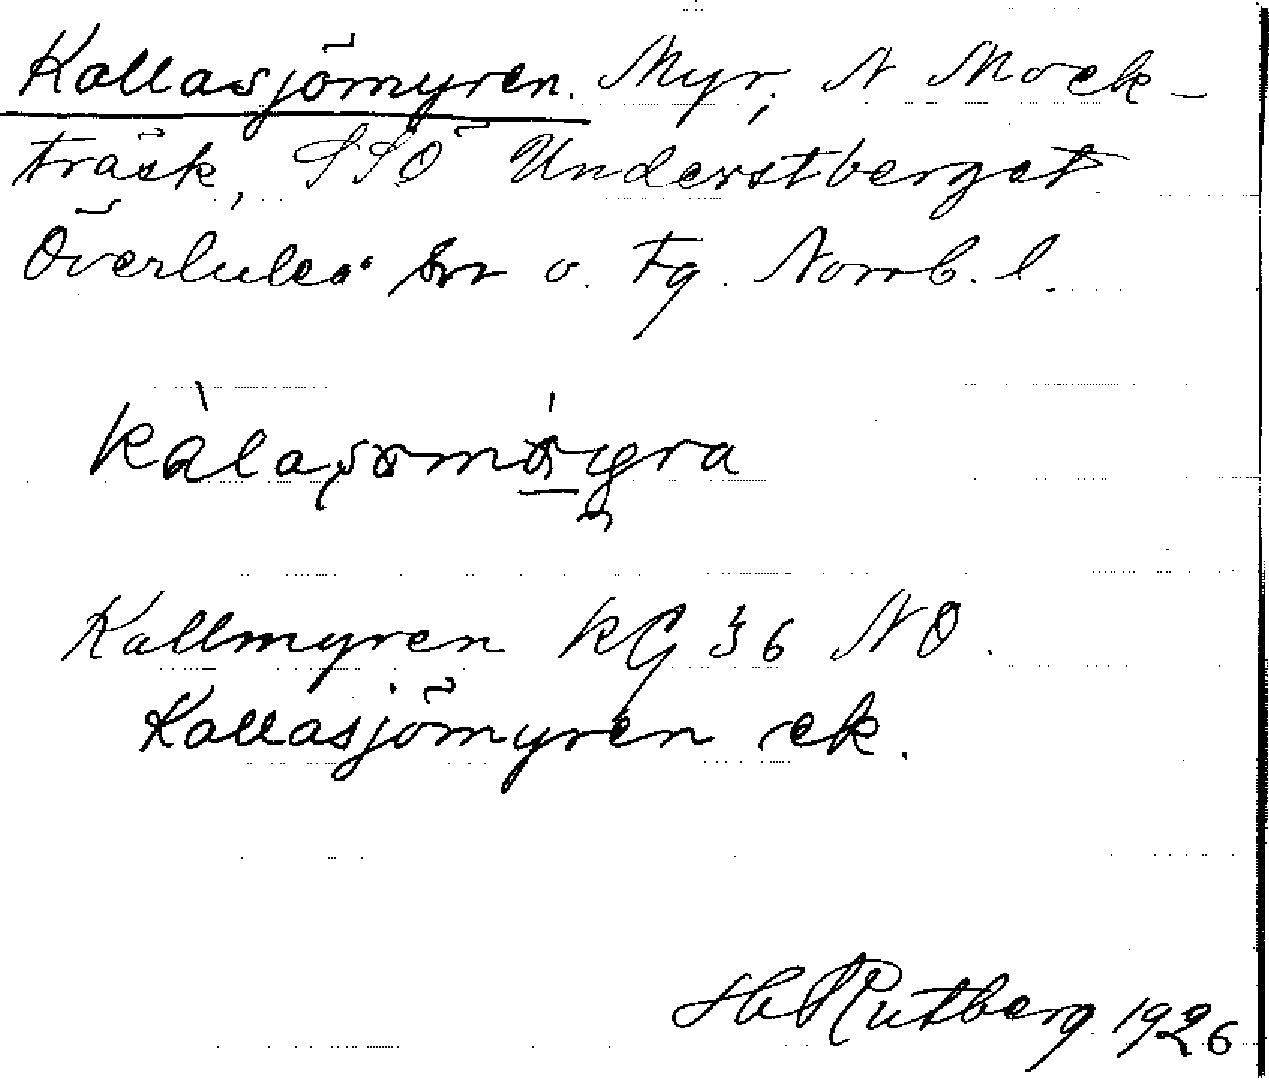 Kallasjömyren. Myr, N Mock-
träsk, SSÖ Understberget
Överluleå sn o. tg. Norrb. l.
Kallmyren KG 36 NO.
Kallasjömyren ek.
H Rutberg 1926